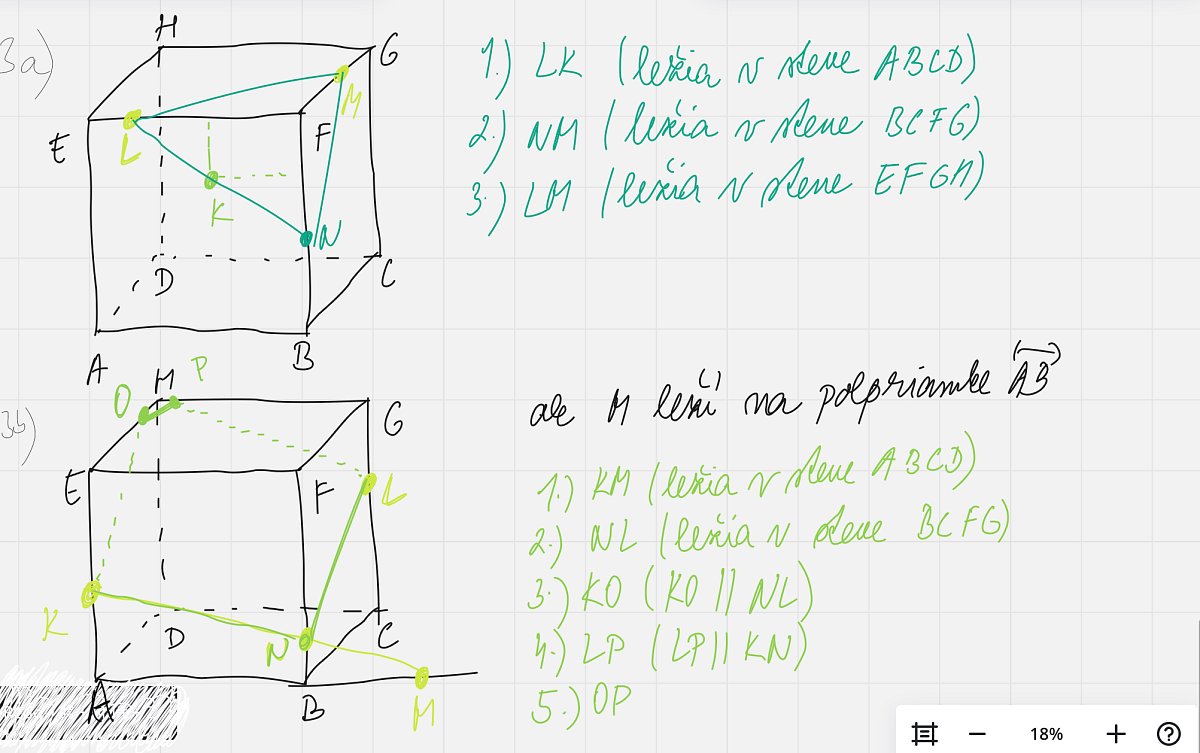 3a)
H
G
E
L
F
M
K
N
D
C
A
B
1.) LK (ležia v stene ABCD)
2.) NM (ležia v stene BCFG)
3.) LM (ležia v stene EFGH)
3b)
O
H
P
G
E
F
L
K
D
N
C
A
B
M
ale M leží na polpriamke AB
1.) KM (ležia v stene ABCD)
2.) NL (ležia v stene BCFG)
3.) KO (KO || NL)
4.) LP (LP || KN)
5.) OP
18%